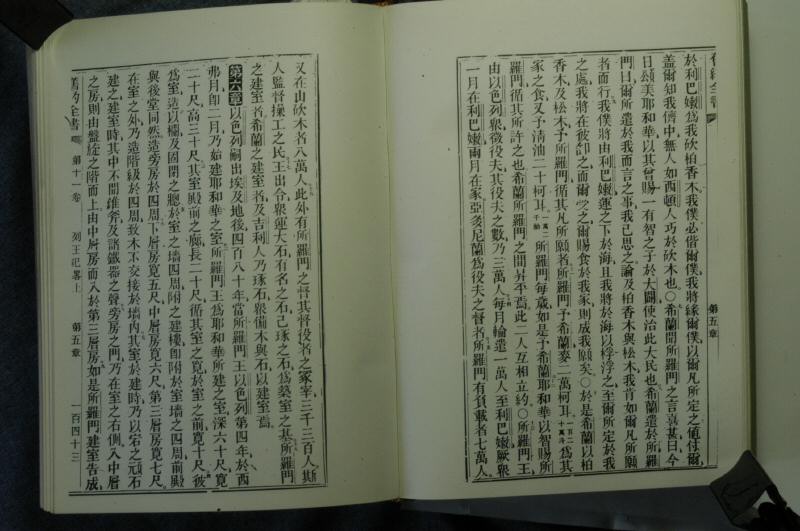 於利巴嫩爲我砍柏香木我僕必偕爾僕我將緣爾僕以爾凡所定之値付爾
蓋爾知我儕中無人如西頓人巧於砍木也○希蘭聞所羅門之言喜甚曰今
日頌美耶和華以其曾賜一有智之子於大闢使治此大民也希蘭遣於所羅
門曰爾所遣於我而言之事我已思之論及柏香木與松木我肯如爾凡所願
者而行我僕將由利巴嫩運之下於海且我將於海以桴浮之至爾所定於我
之處我將在彼卸之而爾受之爾賜食於我家則成我願矣○於是希蘭以柏
香木及松木予所羅門循其凡所願者所羅門予希蘭麥二萬柯耳爲其
家之食又予清油二十柯耳所羅門每歲如是予希蘭耶和華以智賜所
羅門循其所許之也希蘭所羅門之間昇平焉此二人互相立約○所羅門王
由以色列衆徵役夫其役夫之數乃三萬人每月輪遣一萬人至利巴嫩厥衆
一月在利巴嫩兩月在家亞多尼蘭爲役夫之督者所羅門有負載者七萬人
第五章
又在山砍木者八萬人此外有所羅門之督其督役者之冢宰三千三百人斯
人監督操工之民王出令衆運大石有名之石已琢之石爲築室之基所羅門
之建室者希蘭之建室者及吉利人乃琢石衆備木與石以建室焉
第六章以色列嗣出埃及地後四百八十年當所羅門王以色列第四年於西
弗月卽二月乃始建耶和華之室所羅門王爲耶和華所建之室深六十尺寬
二十尺高三十尺其室殿前之廊長二十尺循其室之寬於室之前寬十尺彼
爲室造以欞及固閉之牕於室之墻四周附之建樓卽附於室墻之四周前殿
與後堂同然造旁房於四周下層房寬五尺中層房寬六尺第三層房寬七尺
在室之外乃造階級於四周致木不交接於墻內其室於建時乃以宅之頑石
建之建室時其中不聞錐斧及諸鐵器之聲旁房之門乃在室之右側入中層
之房則由盤旋之階而上由中層房而入於第三層房如是所羅門建室告成
舊約全書 第十一卷 列王紀畧上 第五章 一百四十三